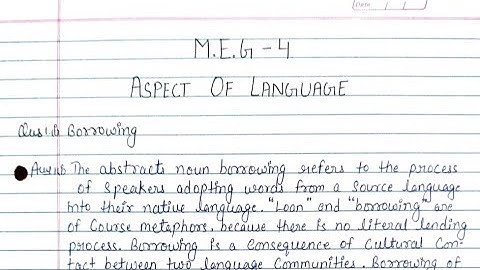 Date
M.E.G - 4
ASPECT OF LANGUAGE
Qus1.i) Borrowing
Ans1.i) The abstracts noun borrowing refers to the process
of speakers adopting words from a source language
into their native language. "Loan" and "borrowing" are
of Course metaphors. because there is no literal lending
process. Borrowing is a Consequence of Cultural Con-
tact between two language Communities. Borrowing of